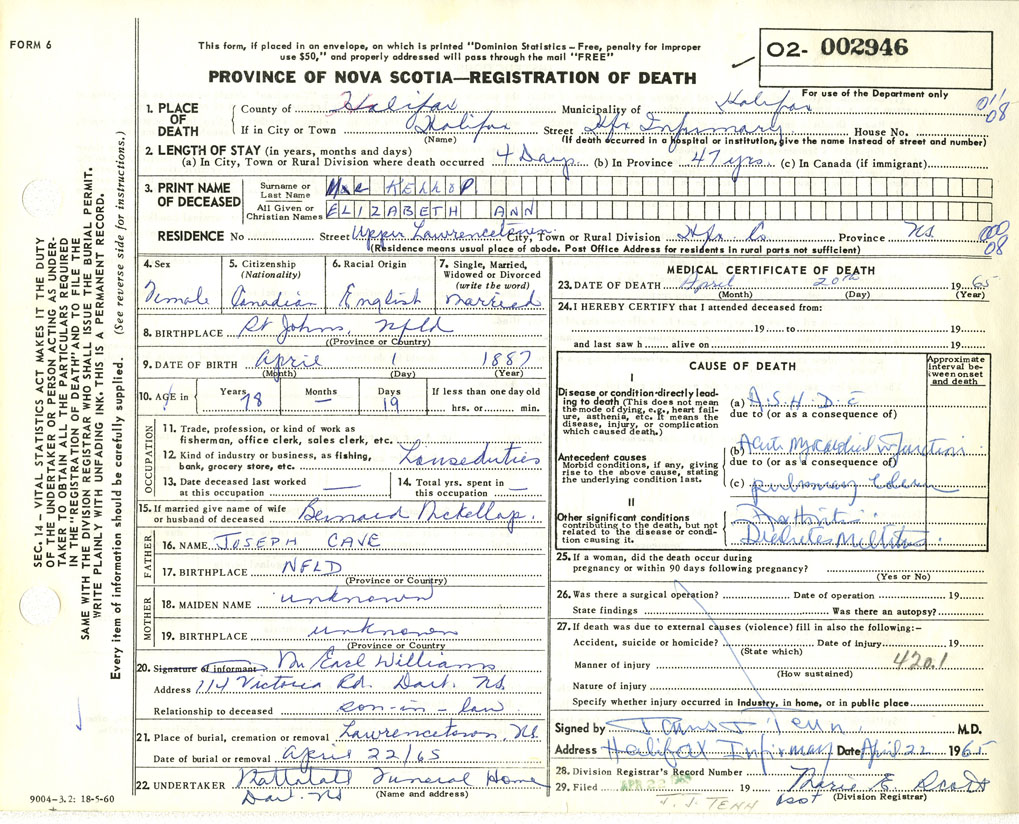 FORM 6
This form, if placed in an envelope, on which is printed "Dominion Statistics – Free, penalty for improper
use $50," and properly addressed will pass through the mail "FREE"
O2- 002946
For use of the Department only
PROVINCE OF NOVA SCOTIA—REGISTRATION OF DEATH
SEC. 14 – VITAL STATISTICS ACT MAKES IT THE DUTY
OF THE UNDERTAKER OR PERSON ACTING AS UNDER-
TAKER TO OBTAIN ALL THE PARTICULARS REQUIRED
IN THE "REGISTRATION OF DEATH" AND TO FILE THE
SAME WITH THE DIVISION REGISTRAR WHO SHALL ISSUE THE BURIAL PERMIT.
WRITE PLAINLY WITH UNFADING INK. THIS IS A PERMANENT RECORD.
Every item of information should be carefully supplied. (See reverse side for instructions.)
1. PLACE OF DEATH
County of Halifax Municipality of Halifax
If in City or Town Halifax Street Hfx Infirmary House No.
(Name) (If death occurred in a hospital or institution, give the name instead of street and number)
08
2. LENGTH OF STAY (in years, months and days)
(a) In City, Town or Rural Division where death occurred 4 Days (b) In Province 47 yrs. (c) In Canada (if immigrant)
3. PRINT NAME OF DECEASED
Surname or Last Name Mac KELLOP
All Given or Christian Names ELIZABETH ANN
RESIDENCE No Street Upper Lawrencetown City, Town or Rural Division Hfx Co Province NS
(Residence means usual place of abode. Post Office Address for residents in rural parts not sufficient)
000
08
4. Sex
Female
5. Citizenship (Nationality)
Canadian
6. Racial Origin
English
7. Single, Married, Widowed or Divorced (write the word)
Married
8. BIRTHPLACE St Johns, Nfld
((Province or Country)
9. DATE OF BIRTH April 1 1887
(Month) (Day) (Year)
10. AGE in Years 78 Months — Days 19 If less than one day old
hrs. or min.
OCCUPATION
11. Trade, profession, or kind of work as
fisherman, office clerk, sales clerk, etc.
12. Kind of industry or business, as fishing,
bank, grocery store, etc. Houseduties
13. Date deceased last worked at this occupation —
14. Total yrs. spent in this occupation —
15. If married give name of wife
or husband of deceased Bernard McKellop.
FATHER
16. NAME JOSEPH CAVE
17. BIRTHPLACE NFLD
(Province or Country)
MOTHER
18. MAIDEN NAME unknown
19. BIRTHPLACE unknown
(Province or Country
20. Signature of informant Mr Earl Williams
Address 114 Victoria Rd. Dart. NS.
Relationship to deceased son-in-law
21. Place of burial, cremation or removal Lawrencetown, NS
Date of burial or removal April 22/65
22. UNDERTAKER Funeral Home
Dart. NS (Name and address)
9004–3.2: 18-5-60
MEDICAL CERTIFICATE OF DEATH
23. DATE OF DEATH April 20th 1965
(Month) (Day) (Year)
24. I HEREBY CERTIFY that I attended deceased from:
19 to 19
and last saw h alive on 19
CAUSE OF DEATH
Approximate interval between onset and death
I
Disease or condition directly lead-
ing to death (This does not mean
the mode of dying, e.g., heart fail-
ure, asthenia, etc. It means the
disease, injury, or complication
which caused death.)
(a) A.S.H.D.E
due to (or as a consequence of)
Antecedent causes
Morbid conditions, if any, giving
rise to the above cause, stating
the underlying condition last.
(b) Acute Myocardial Infarction
due to (or as a consequence of)
(c) pulmonary Edema
II
Other significant conditions
contributing to the death, but not
related to the disease or condi-
tion causing it.
Diabetes Mellitus
25. If a woman, did the death occur during
pregnancy or within 90 days following pregnancy?
(Yes or No)
26. Was there a surgical operation? Date of operation 19
State findings Was there an autopsy?
27. If death was due to external causes (violence) fill in also the following:–
Accident, suicide or homicide? Date of injury 19
(State which)
Manner of injury 420.1
(How sustained)
Nature of injury
Specify whether injury occurred in industry, in home, or in public place
Signed by M.D.
Address Halifax Infirmary Date April 22 1965
28. Division Registrar's Record Number
29. Filed APR 22 19 Marie E. Scott
J. J. TENN (Division Registrar)